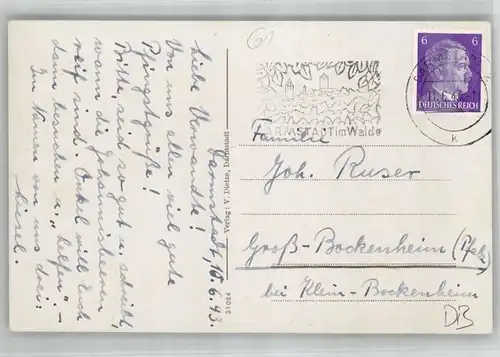 Darmstadt, 15.6.43.
Liebe Verwandte!
Von uns allen viel gute
Pfingstgrüße!
Bitte, seid so gut u. schreibt,
wann die Johannisbeeren
reif sind. Onkel will Euch
dann besuchen u. „helfen“.-
Im Namen von uns drei:
Liesel.
Verlag: V. Dietze, Darmstadt
31084
6 6
DEUTSCHES REICH
DARMSTADT im Walde
k
Familie
Joh. Ruser
Groß-Bockenheim (Pfalz)
bei Klein-Bockenheim
DB